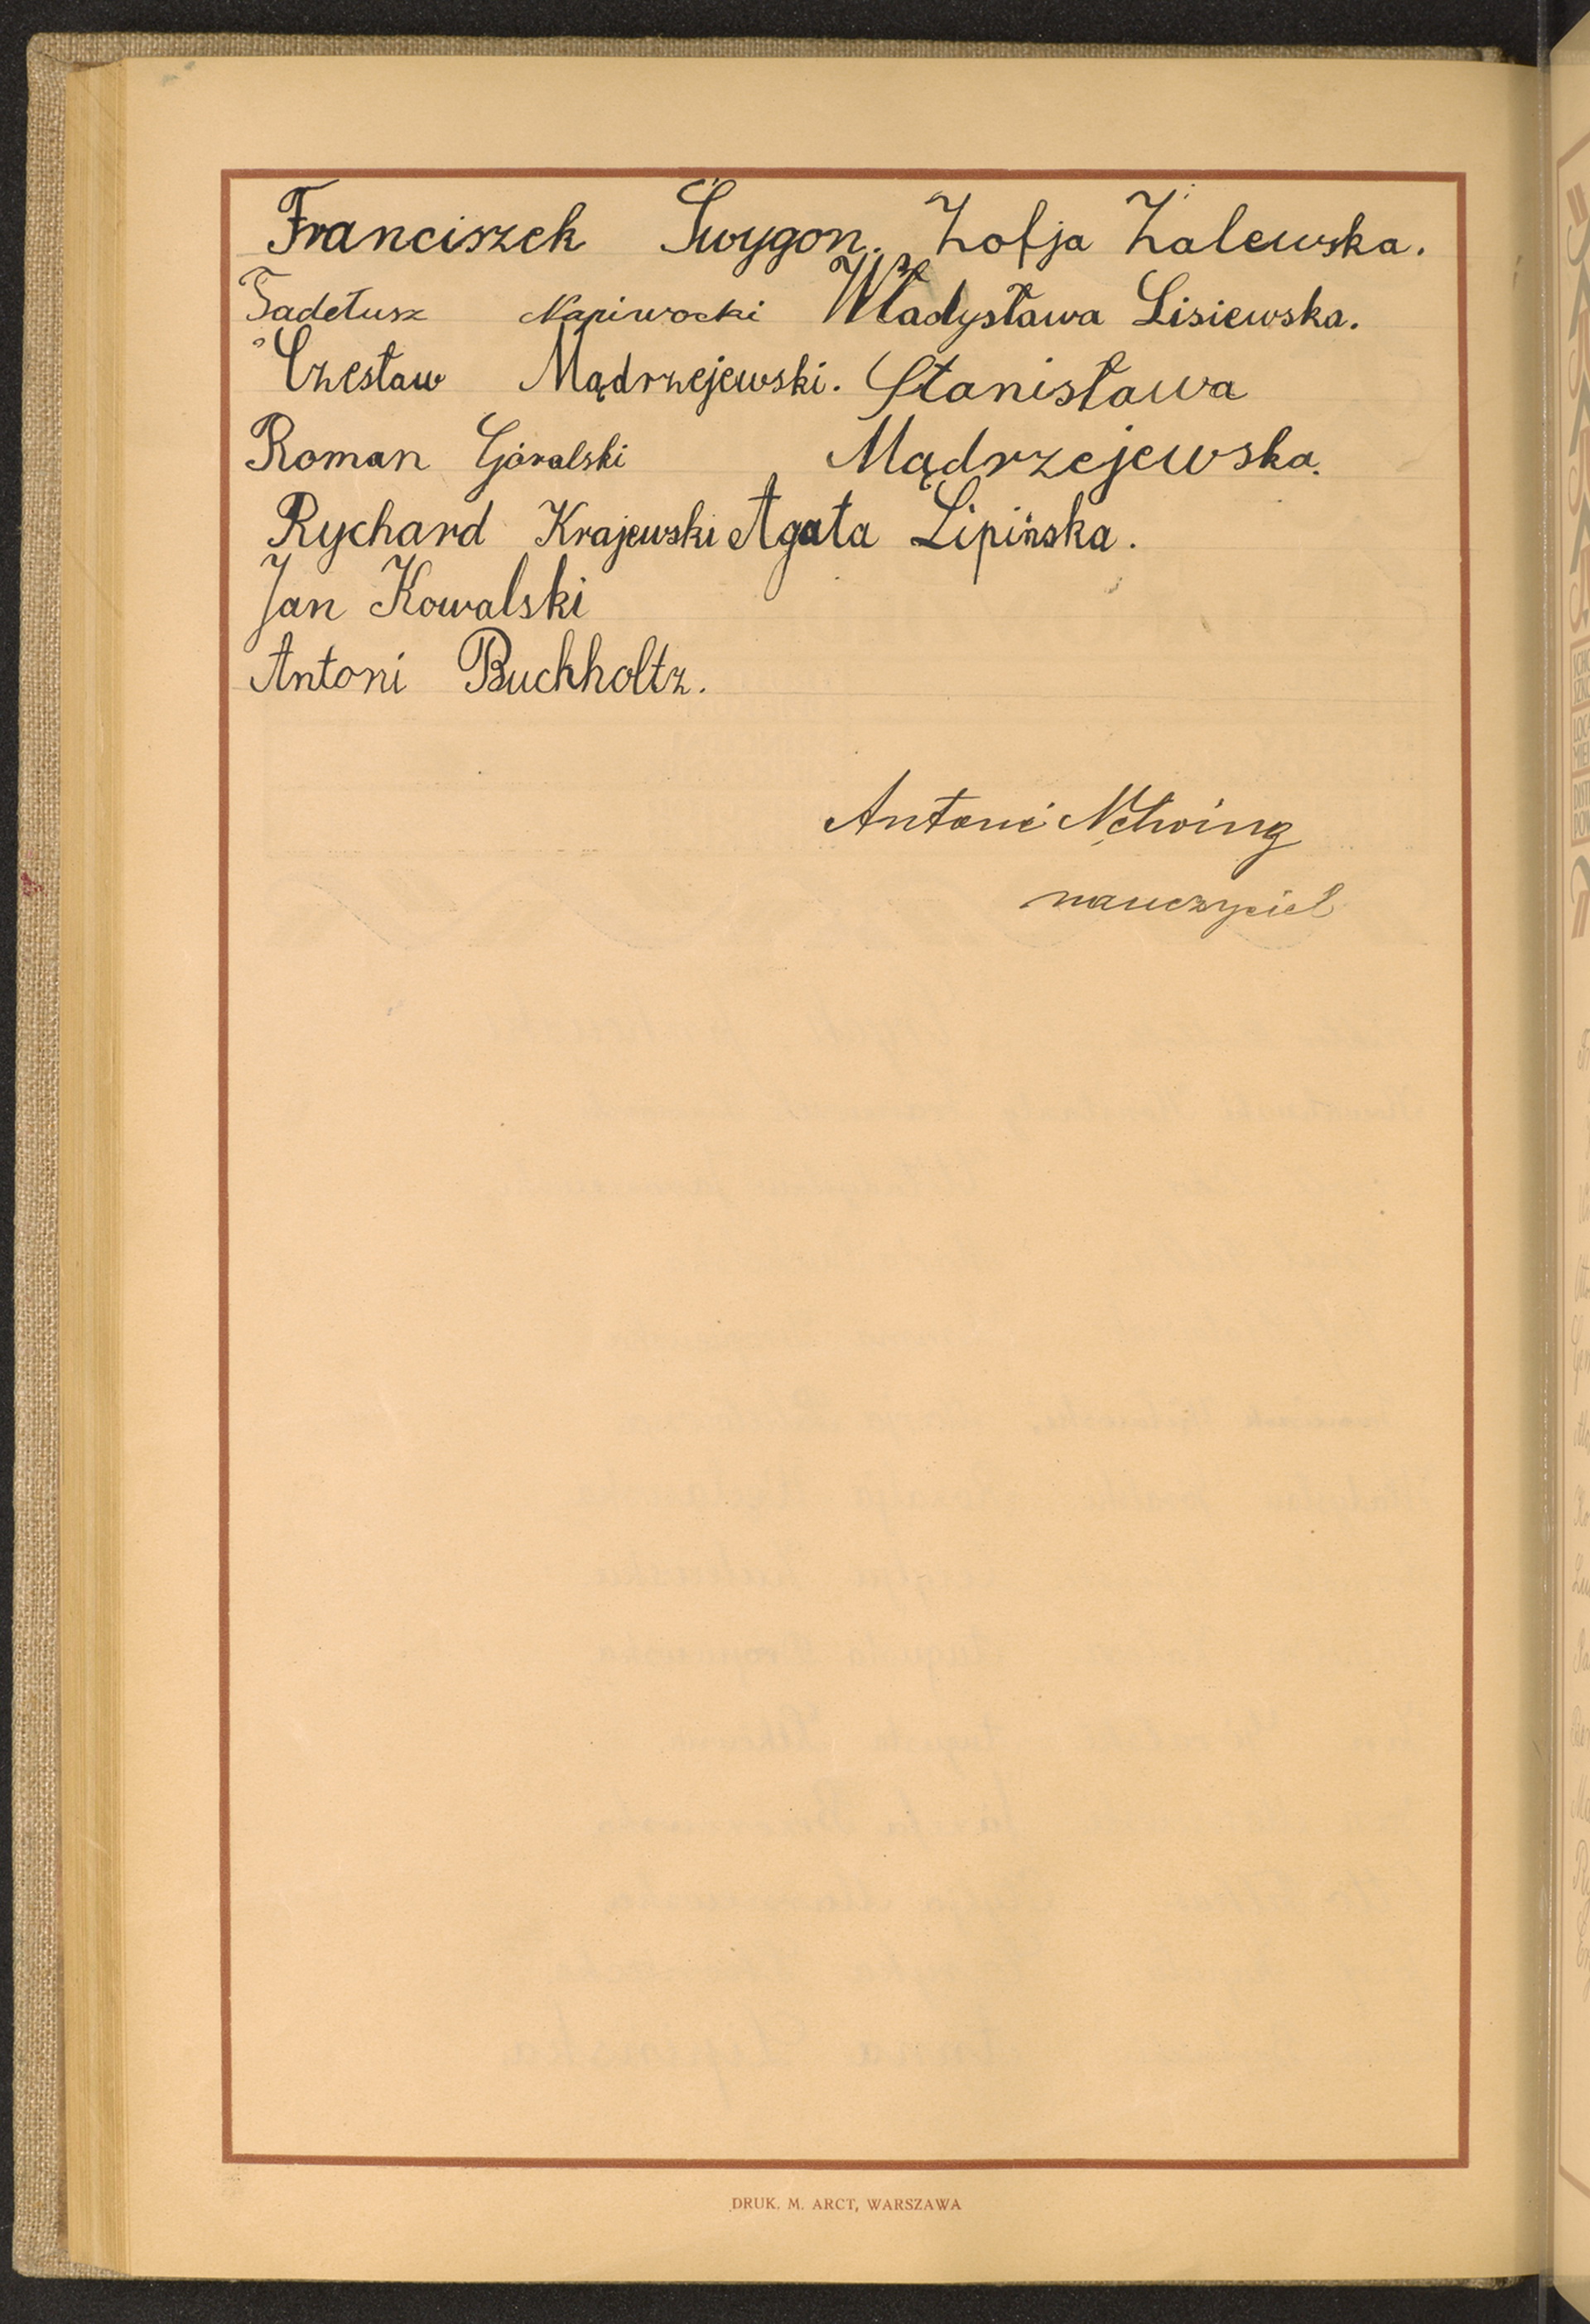 Franciszek Śwygon. Zofja Zalewska.
Tadeusz Napiwocki Władysława Lisiewska.
Czesław Mądrzejewski. Stanisława
Roman Góralski Mądrzejewska.
Rychard Krajewski Agata Lipińska.
Jan Kowalski
Antoni Buchholtz.
Antoni
nauczyciel
DRUK. M. ARCT, WARSZAWA